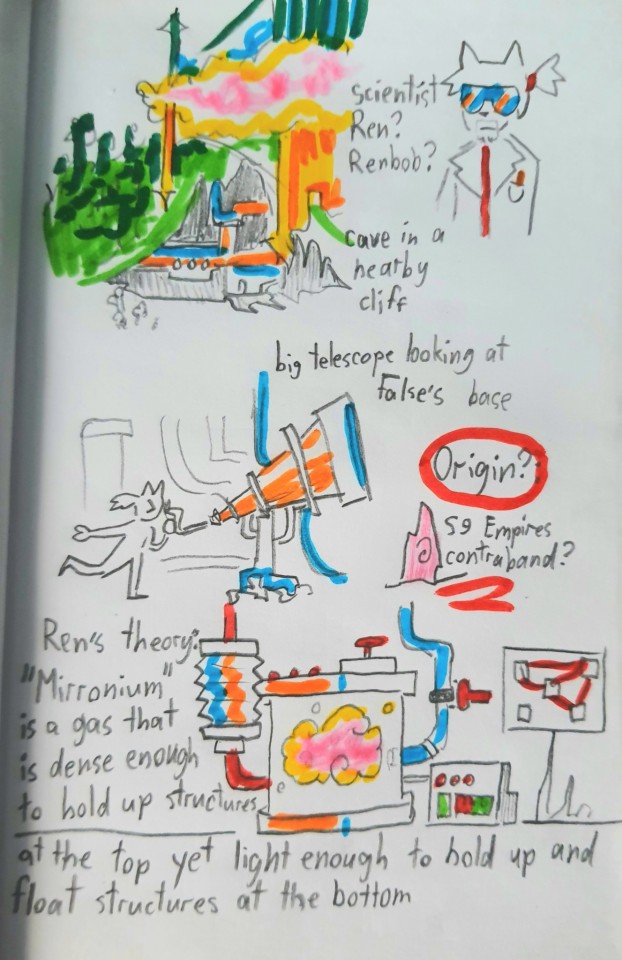 scientist
Ren?
Renbob?
cave in a
nearby
cliff
big telescope looking at
False's base
Origin?
S9 Empires
contraband?
Ren's theory:
"Mirronium"
is a gas that
is dense enough
to hold up structures
at the top yet light enough to hold up and
float structures at the bottom